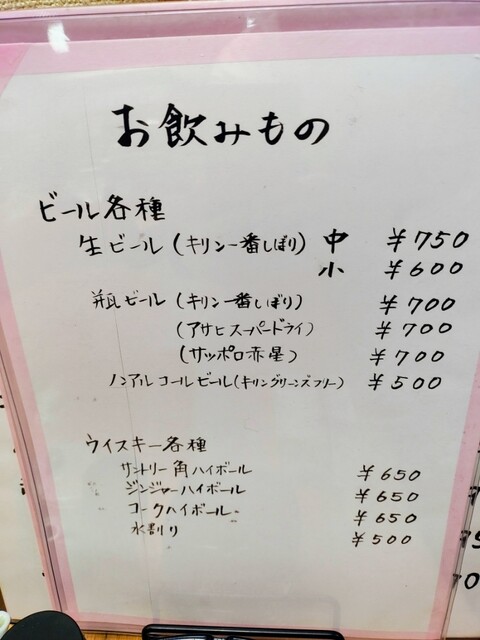 お飲みもの
ビール各種
生ビール(キリン一番しぼり) 中 ¥750
小 ¥600
瓶ビール(キリン一番しぼり) ¥700
(アサヒスーパードライ) ¥700
(サッポロ赤星) ¥700
ノンアルコールビール(キリングリーンズフリー) ¥500
ウイスキー各種
サントリー角ハイボール ¥650
ジンジャーハイボール ¥650
コークハイボール ¥650
水割り ¥500